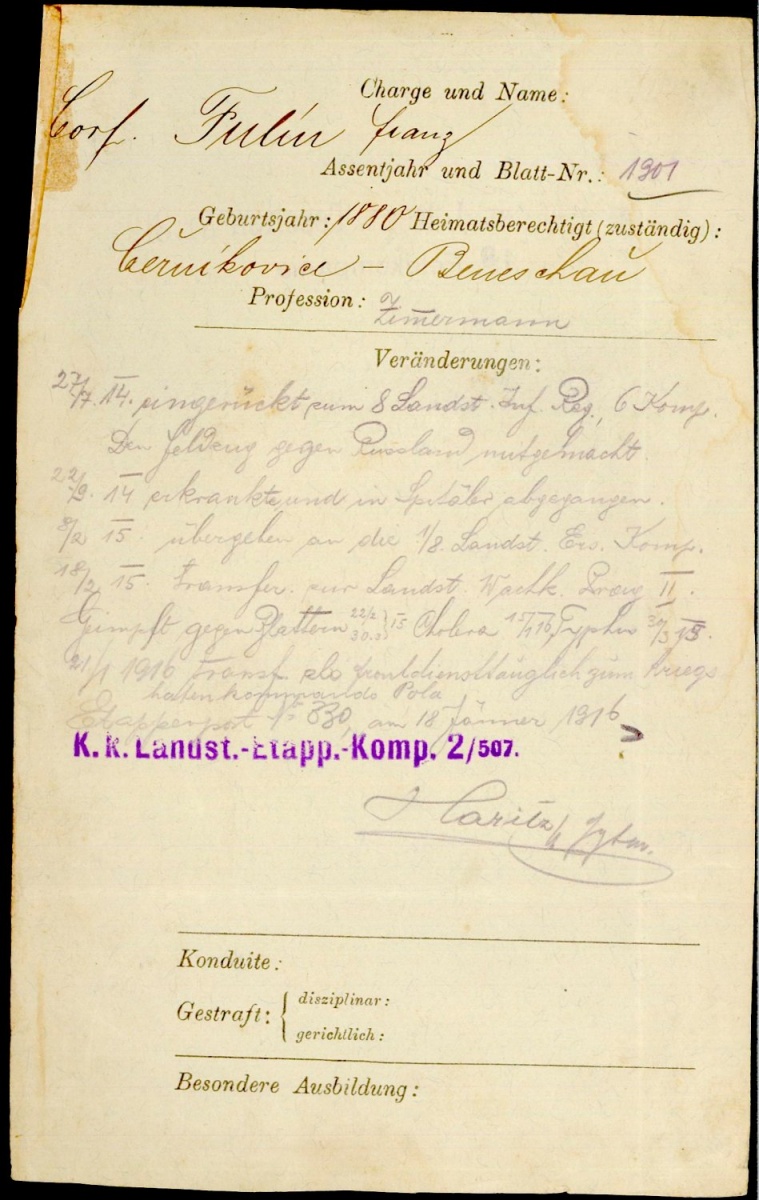 Charge und Name:
Corp. Fulín Franz
Assentjahr und Blatt-Nr.: 1901
Geburtsjahr: 1880 Heimatsberechtigt (zuständig):
Černíkovice – Beneschau
Profession: Zimermann
Veränderungen:
27/7. 14. eingerückt zum 8 Landst. Inf. Reg., 6 Komp.
Den Feldzug gegen Russland mitgemacht.
22/9. 14 erkrankte und in Spitäler abgegangen.
8/2 15. übergeben an die 1/8. Landst. Ers. Komp.
18/2 15. Transfer. zur Landst. Wachk. Prag II.
Geimpft gegen Blattern 22/2 30.3 } 15 Cholera 16, Typhus
21/1 1916 Transf. als frontdiensttauglich zum Kriegs
hafenkommando Pola
Etappenpost No 330, am 18 Jänner 1916
K. k. Landst.-Etapp.-Komp. 2/507.
Haritz
Konduite:
Gestraft: { disziplinar:
gerichtlich:
Besondere Ausbildung: